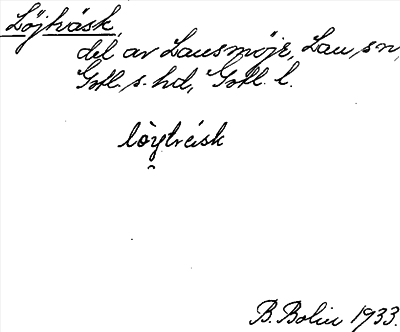 Löjhäsk,
del av Lausmöje, Lau sn,
Gotl. s. hd, Gotl. l.
B. Bolin 1933.